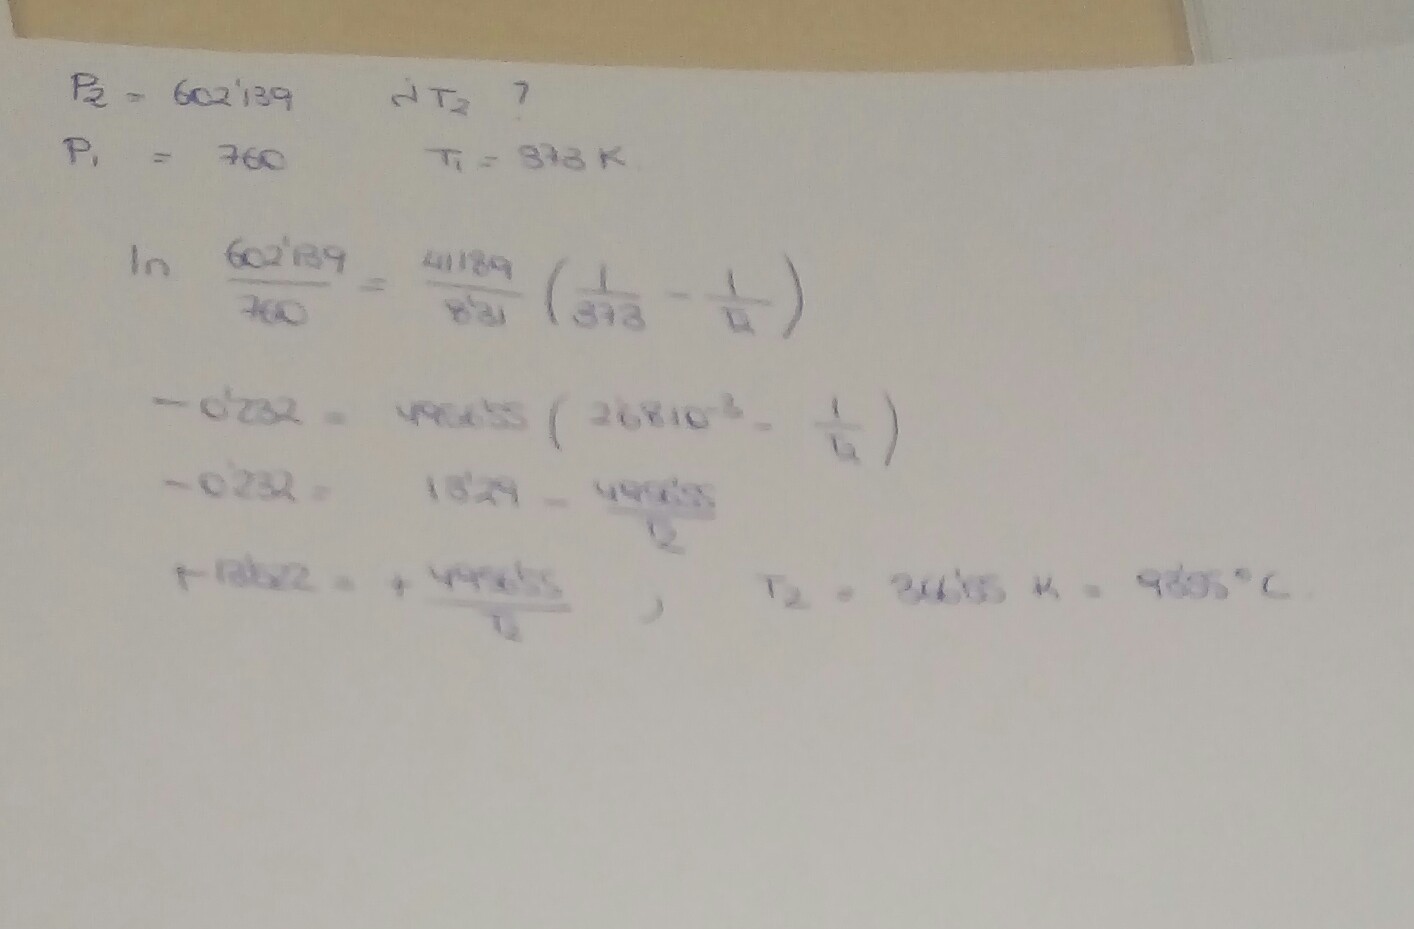 P2 = 602'139 ¿T2 ?
P1 = 760 T1 = 373 K
ln 602'139/760 = 41189/8'31 (1/373 - 1/T2)
-0'232 = 4956'55 (2'68 10^-3 - 1/T2)
-0'232 = 13'29 - 4956'55/T2
+13'522 = + 4956'55/T2 , T2 = 366'55 K = 93'55 °C.